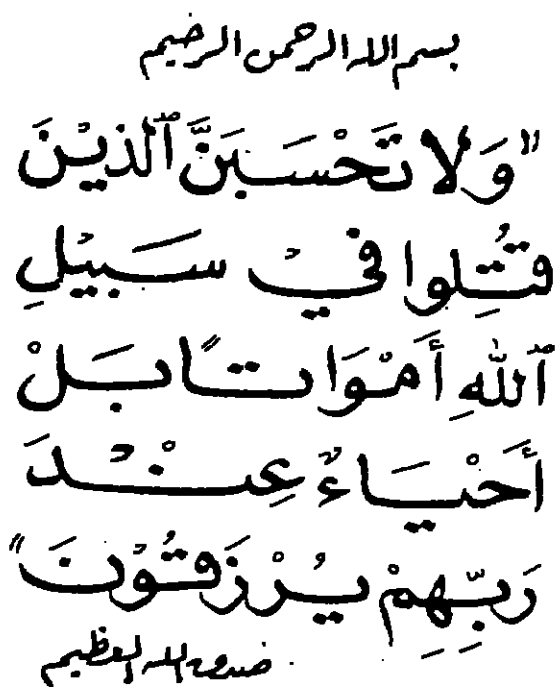 بسم الله الرحمن الرحيم
"وَلا تَحْسَبَنَّ ٱلذيْنَ
قتُلِوا فيْ سَبيْلِ
ٱللهِ أَمْوَاتاً بَلْ
أَحْيَاءٌ عِنْدَ
رَبِّهِمْ يُرْزَقوُنَ"
صدق الله العظيم